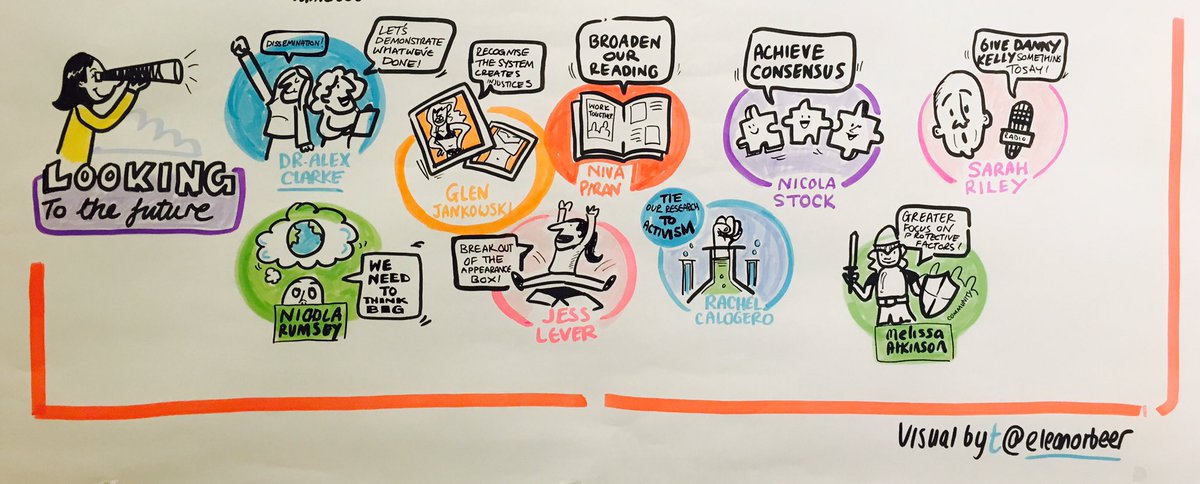 LOOKING
To the future
DISSEMINATION!
LET'S
DEMONSTRATE
WHAT WE'VE
DONE!
DR. ALEX
CLARKE
RECOGNISE
THE SYSTEM
CREATES
INJUSTICES
GLEN
JANKOWSKI
BROADEN
OUR
READING
WORK
TOGETHER
NIVA
PIRAN
ACHIEVE
CONSENSUS
NICOLA
STOCK
GIVE DANNY
KELLY SOMETHING
TO SAY!
RADIO
SARAH
RILEY
WE
NEED
TO
THINK
BIG
NICOLA
RUMSEY
BREAK OUT
OF THE
APPEARANCE
BOX!
JESS
LEVER
TIE
OUR RESEARCH
TO
ACTIVISM
RACHEL
CALOGERO
GREATER
FOCUS ON
PROTECTIVE
FACTORS!
Melissa
Atkinson
Visual by t@eleanorbeer